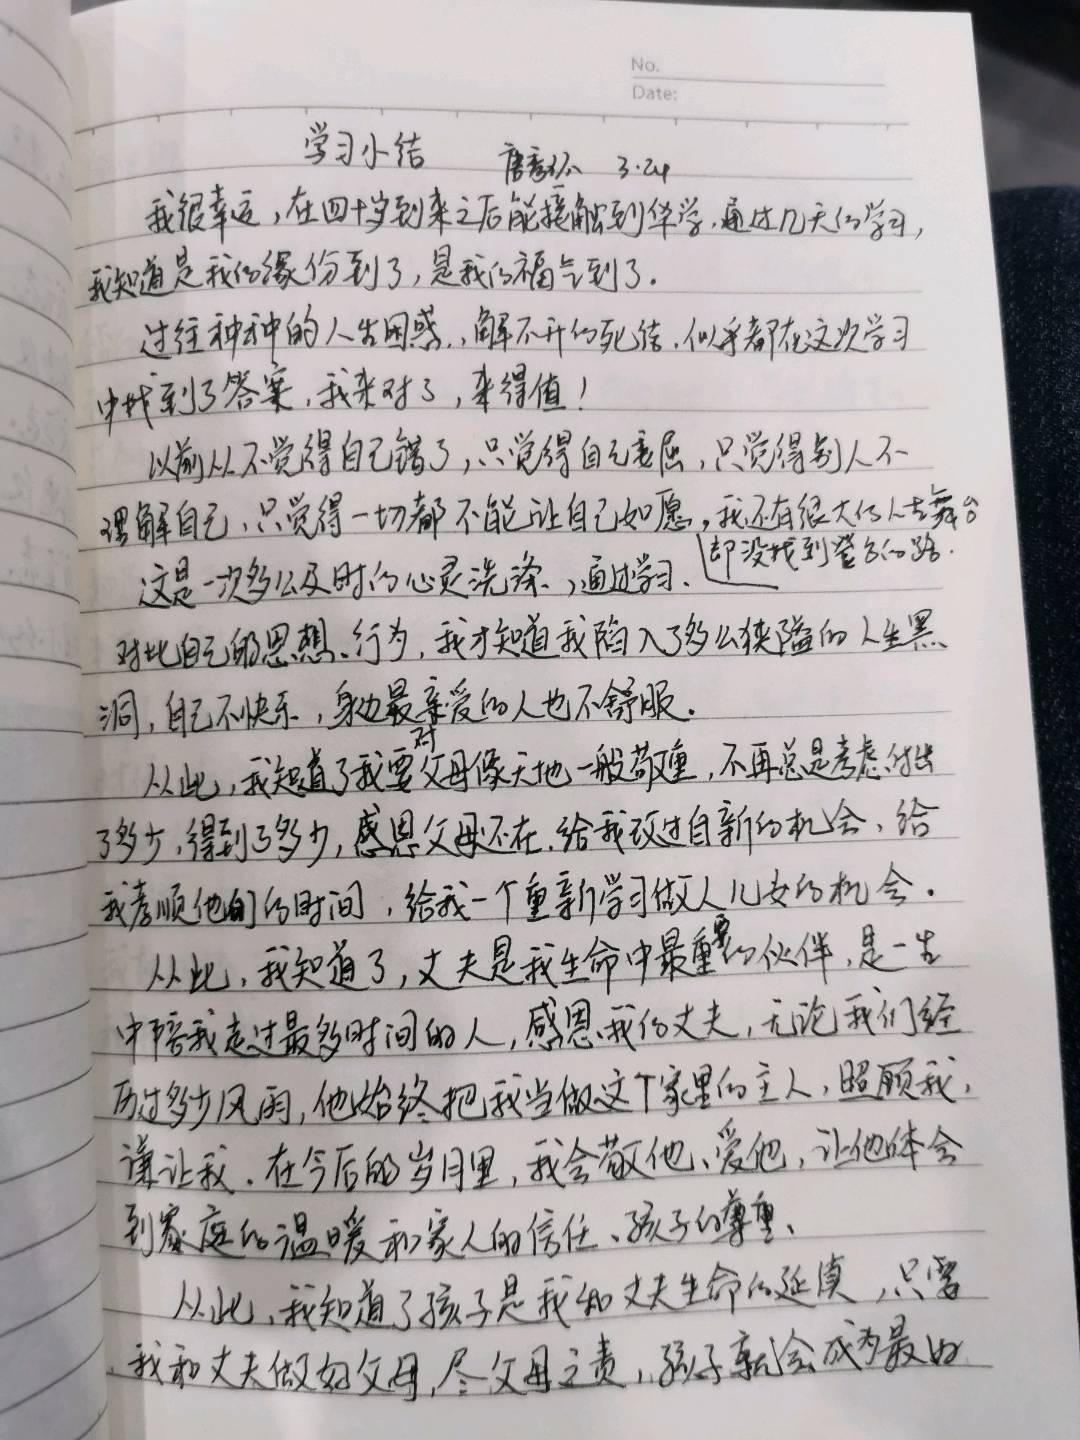 No.
Date:
学习小结 唐秀环 3.24
我很幸运，在四十岁到来之后能接触到华学，通过几天的学习，
我知道是我的缘份到了，是我的福气到了．
过往种种的人生困惑，解不开的死结，似乎都在这次学习
中找到了答案，我来对了，来得值！
以前从不觉得自己错了，只觉得自己委屈，只觉得别人不
理解自己，只觉得一切都不能让自己如愿，我还有很大的人生舞台
却没找到登台的路．
这是一次多么及时的心灵洗涤，通过学习、
对比自己的思想、行为，我才知道我陷入了多么狭隘的人生黑
洞，自己不快乐，身边最亲爱的人也不舒服．
从此，我知道了我要对父母像天地一般敬重，不再总是考虑付出
了多少，得到了多少，感恩父母还在，给我改过自新的机会、给
我孝顺他们的时间，给我一个重新学习做人儿女的机会．
从此，我知道了，丈夫是我生命中最重要的伙伴，是一生
中陪我走过最多时间的人，感恩我的丈夫，无论我们经
历过多少风雨，他始终把我当做这个家里的主人，照顾我，
谦让我．在今后的岁月里，我会敬他、爱他，让他体会
到家庭的温暖和家人的信任、孩子的尊重、
从此，我知道了孩子是我和丈夫生命的延续，只需
我和丈夫做好父母，尽父母之责，孩子就会成为最好